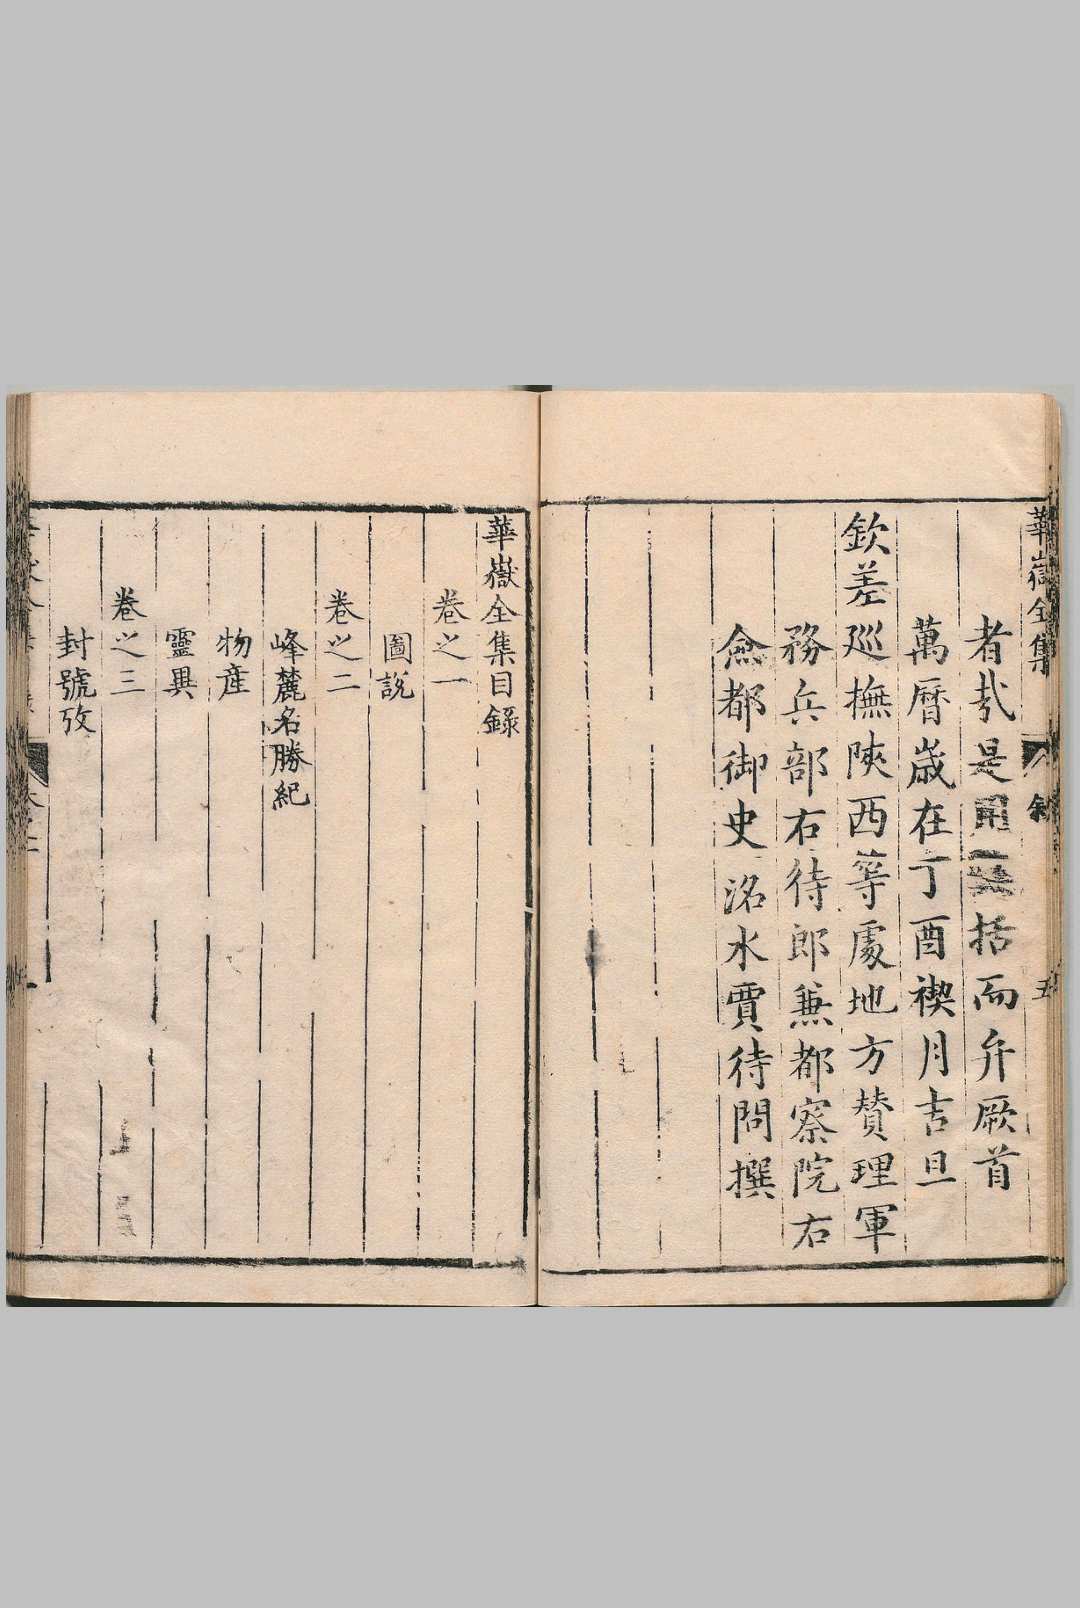 華嶽全集 敘 五
者㢤是用 括而弁厥首
萬曆歲在丁酉禊月吉旦
欽差巡撫陝西等處地方贊理軍
務兵部右侍郎兼都察院右
僉都御史洺水賈待問撰
華嶽全集目錄
卷之一
圖說
卷之二
峰麓名勝紀
物産
靈異
卷之三
封號攷